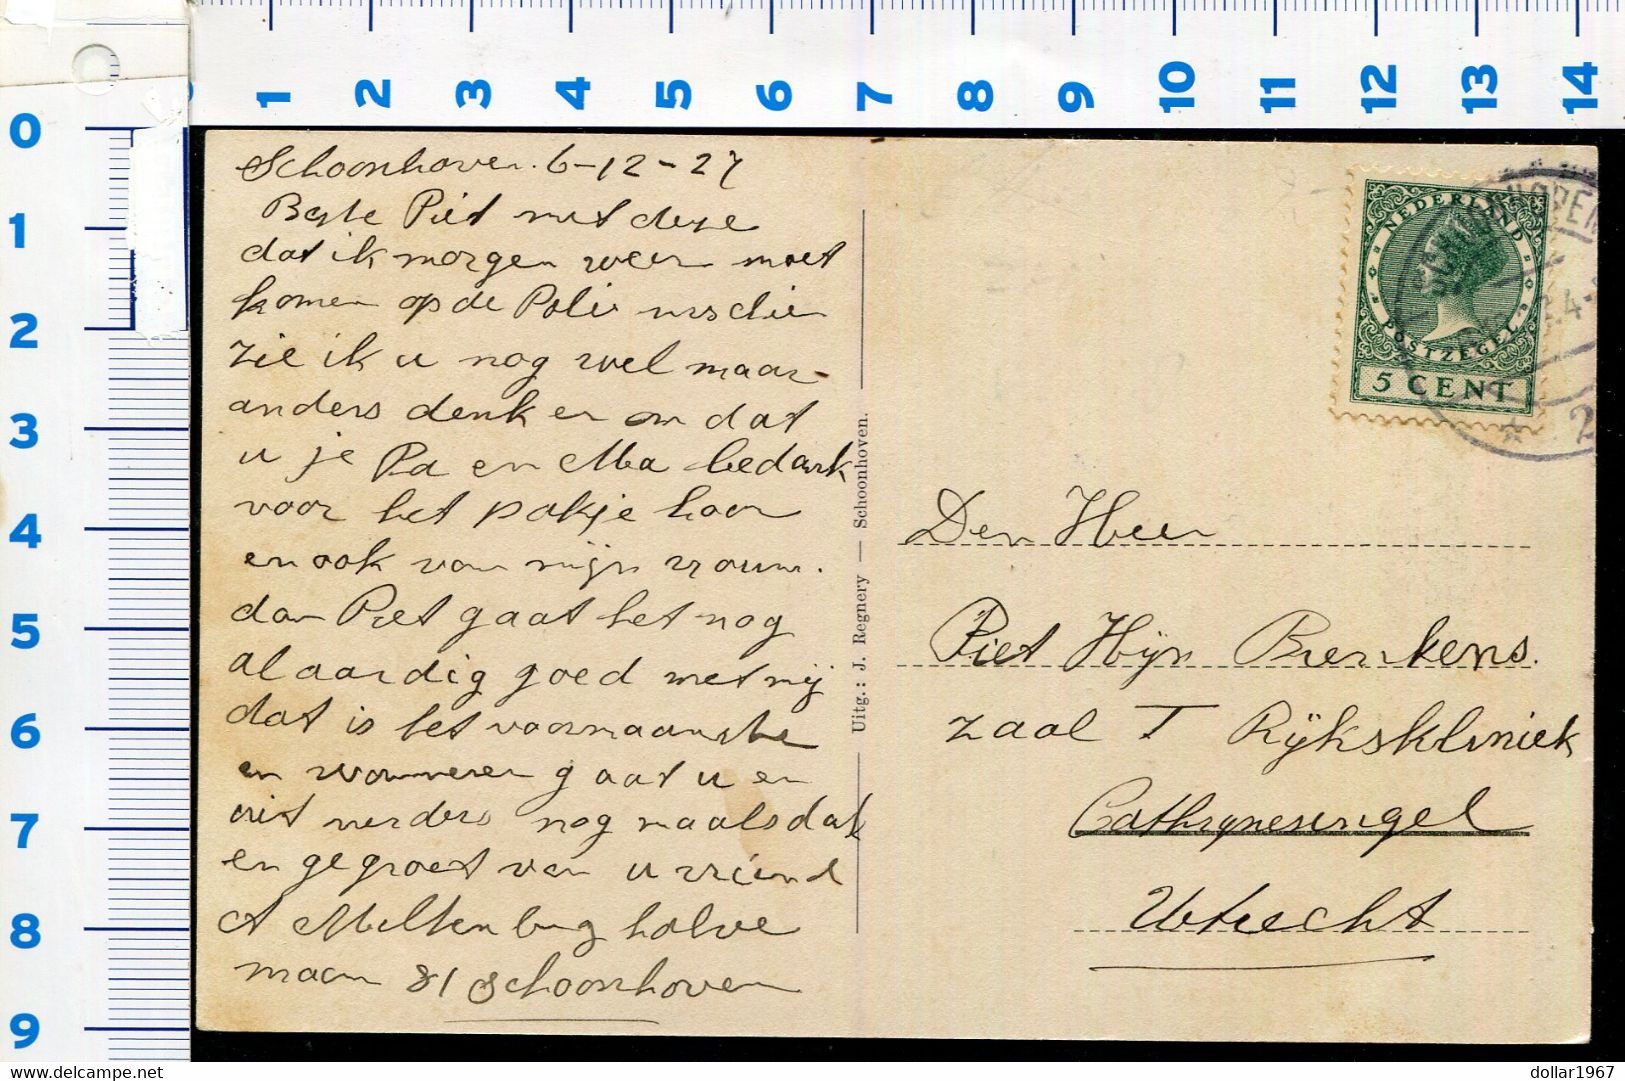 1 2 3 4 5 6 7 8 9 10 11 12 13 14
0
1
2
3
4
5
6
7
8
9
Schoonhoven. 6-12-27
Beste Piet met deze
dat ik morgen weer moet
komen op de Polie misschien
zie ik u nog wel maar
anders denk er om dat
u je Pa en Ma bedank
voor het pakje hoor
en ook van mijn vrouw.
dan Piet gaat het nog
al aardig goed met mij
dat is het voornaamste
en wanneer gaat u er
uit verders nog maals dak
en gegroet van u vriend
A Meltenburg halve
maan 81 Schoonhoven
Uitg.: J. Regnery — Schoonhoven.
NEDERLAND
POSTZEGEL
5 CENT
Den Heer
Piet Hijn Berkens.
zaal I Rijkskliniek
Cathrynesingel
Utrecht
www.delcampe.net
dollar1967